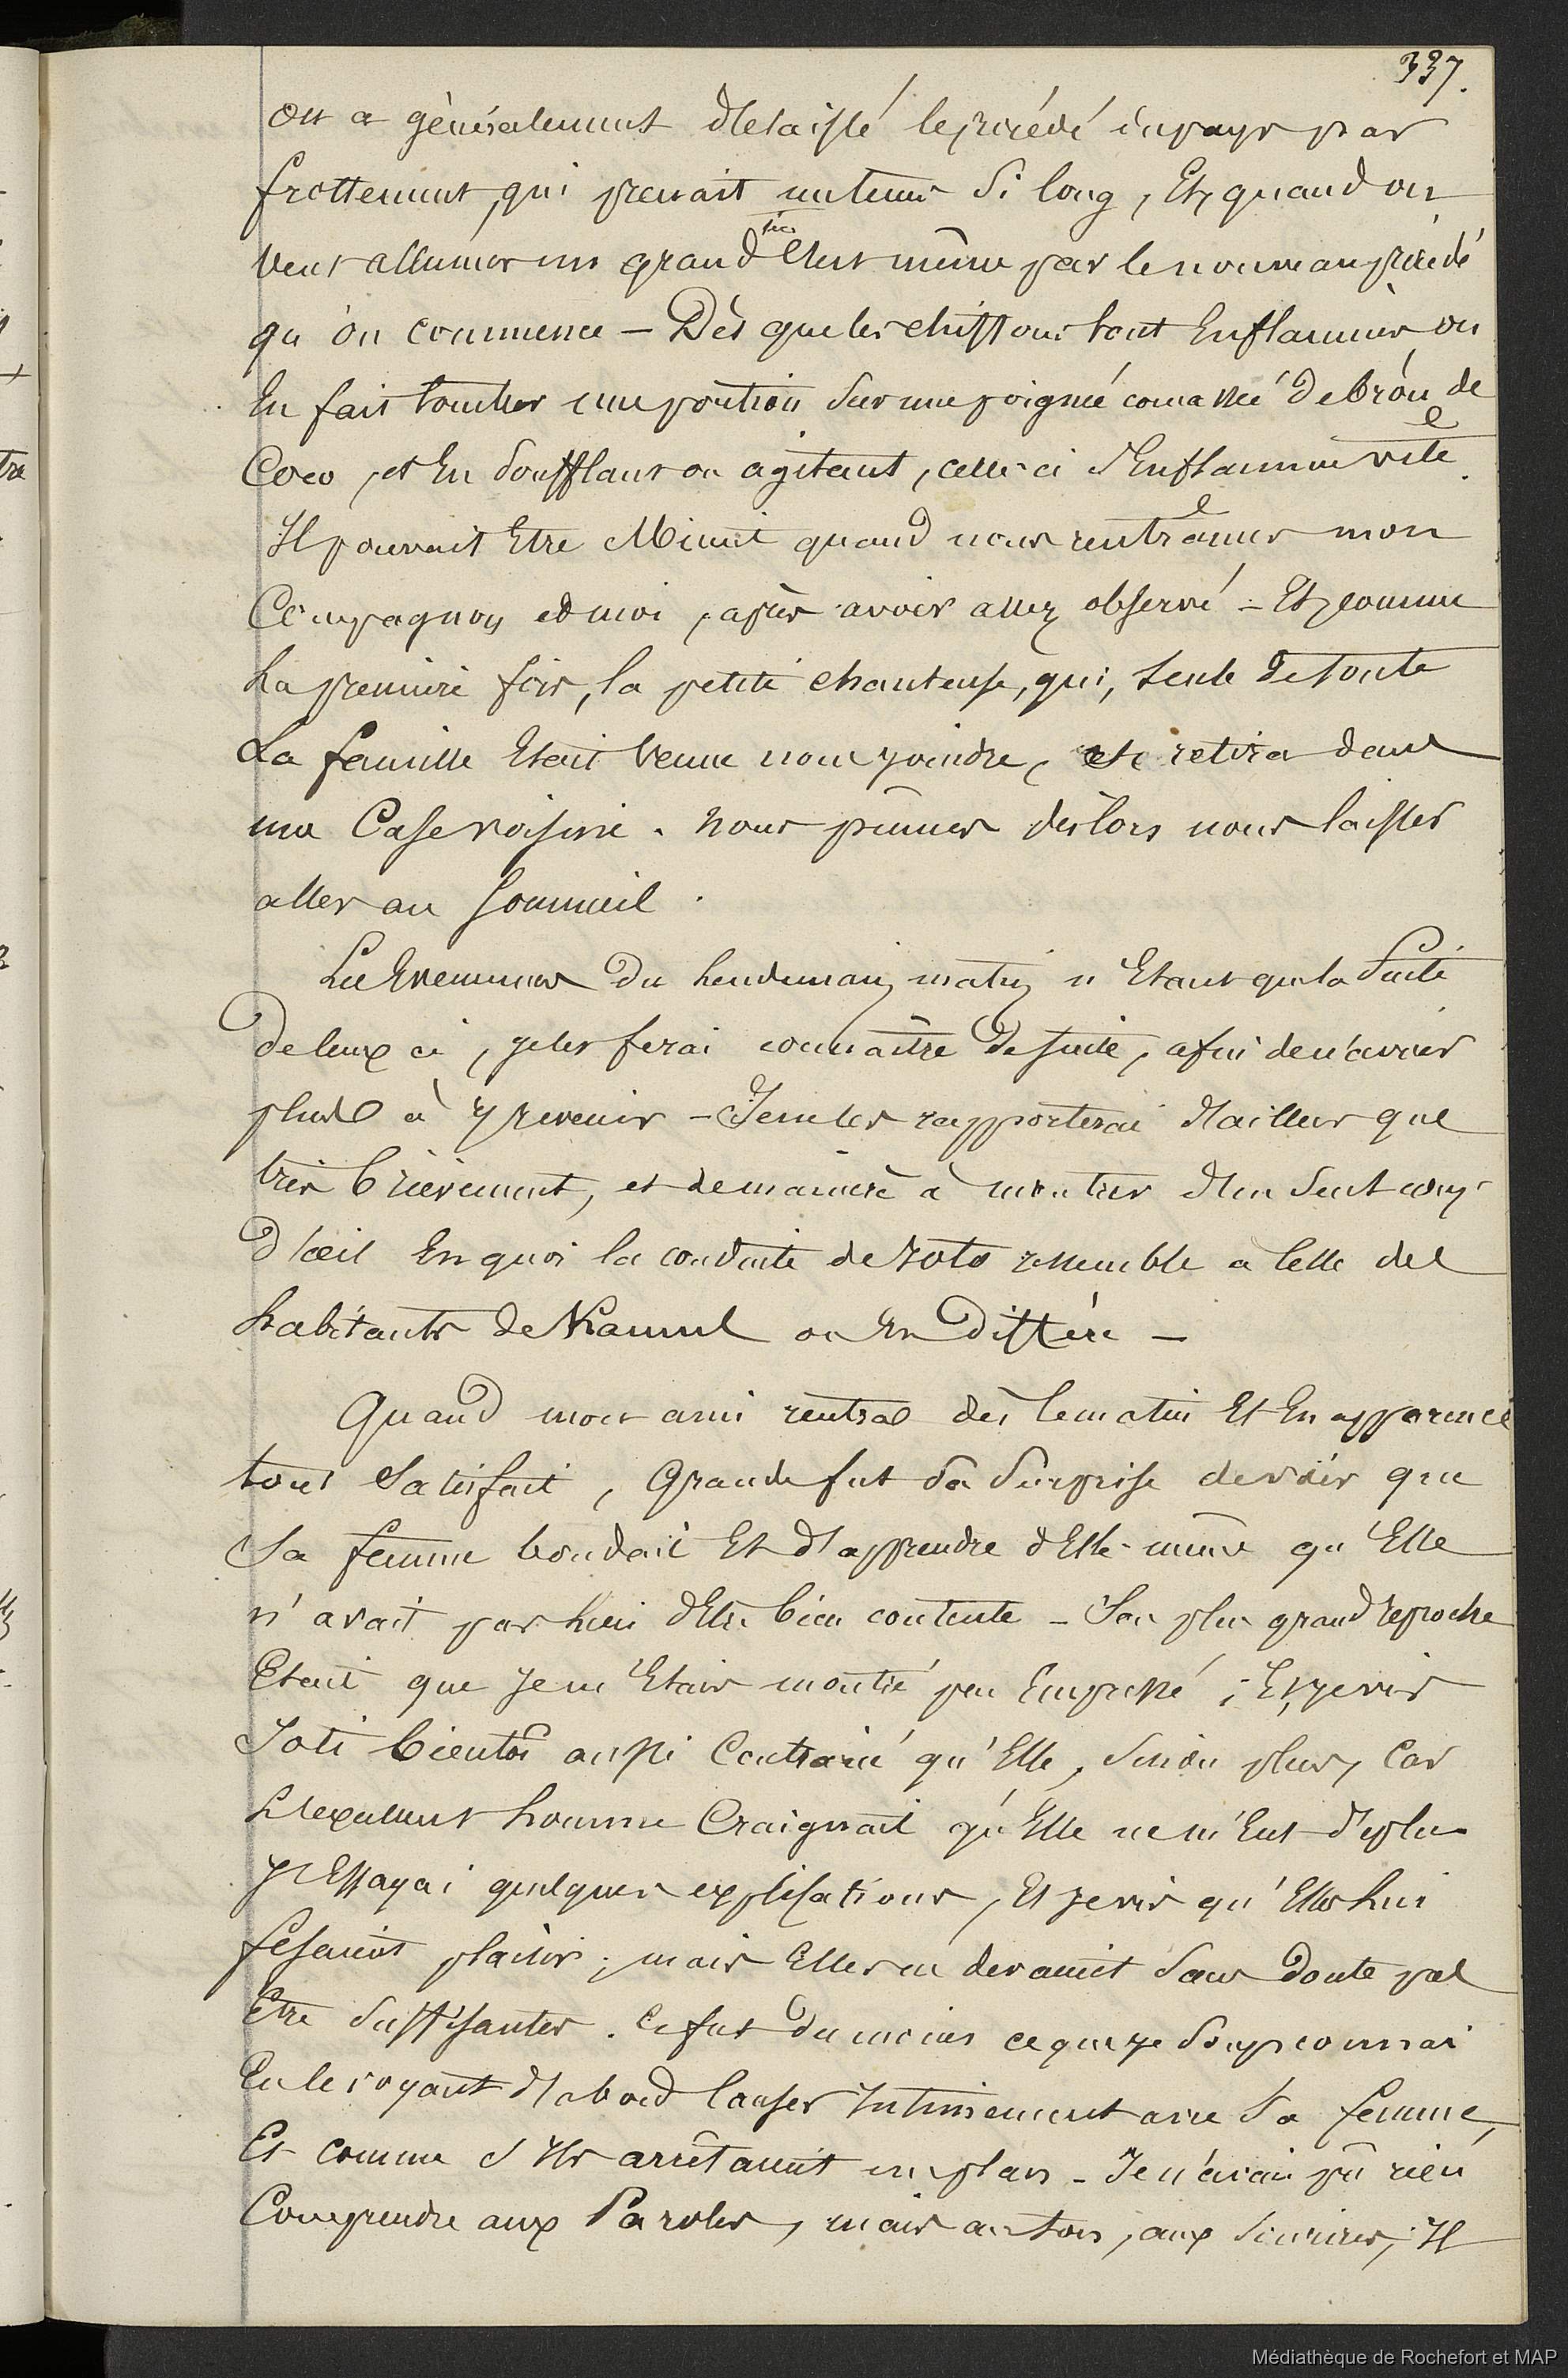 337.
On a généralement délaissé le procédé du pays par
frottement, qui prenait un temps si long, Et, quand on
veut allumer un grand feu C'est même par le nouveau procédé
qu'on commence — Dès que les chiffons sont Enflammés on
En fait tomber une portion sur une poignée de brou de
Coco, et En soufflant ou agitant, celle-ci s'Enflamme vite.
Il pouvait Etre Minuit quand nous rentrâmes mon
Compagnon et moi, après avoir assez observé — Et, comme
La première fois, la petite chanteuse, qui, seule de toute
La famille Etait venue nous joindre, se retira dans
une Case voisine. Nous pûmes dès lors nous laisser
aller au sommeil.
Les Evenements Du Lendemain matin n'Etant que la Suite
De ceux ci, je les ferai connaître De suite, afin de n'avoir
plus à y revenir — Je ne les rapporterai d'ailleurs que
très brièvement, et de manière à montrer d'un seul coup
D'œil En quoi la conduite de Joto ressemble a celle des
habitants de ou En Diffère —
Quand mon ami rentra dès le matin Et En apparence
tout Satisfait, Grande fut Sa Surprise de voir que
Sa femme boudait Et d'apprendre d'Elle-même qu'Elle
n'avait pas lieu d'Etre bien contente — Son plus grand reproche
Etait que je m'Etais montré peu Empressé ; Et, je vis
Joti bientôt aussi Contrarié qu'Elle, sinon plus, Car
L'excellent homme Craignait qu'Elle ne m'Eut déplu
J'Essayai quelques explications, Et je vis qu'Elles lui
fesaient plaisir ; mais Elles ne devaient Sans Doute pas
Etre Suffisantes. Ce fut Du moins ce que je Soupçonnai
En le voyant d'abord Causer Intimement avec Sa femme,
Et comme s'Ils arrêtaient un plan — Je n'avais pû rien
Comprendre aux Paroles, mais au ton, aux Sourires, Il
Médiathèque de Rochefort et MAP